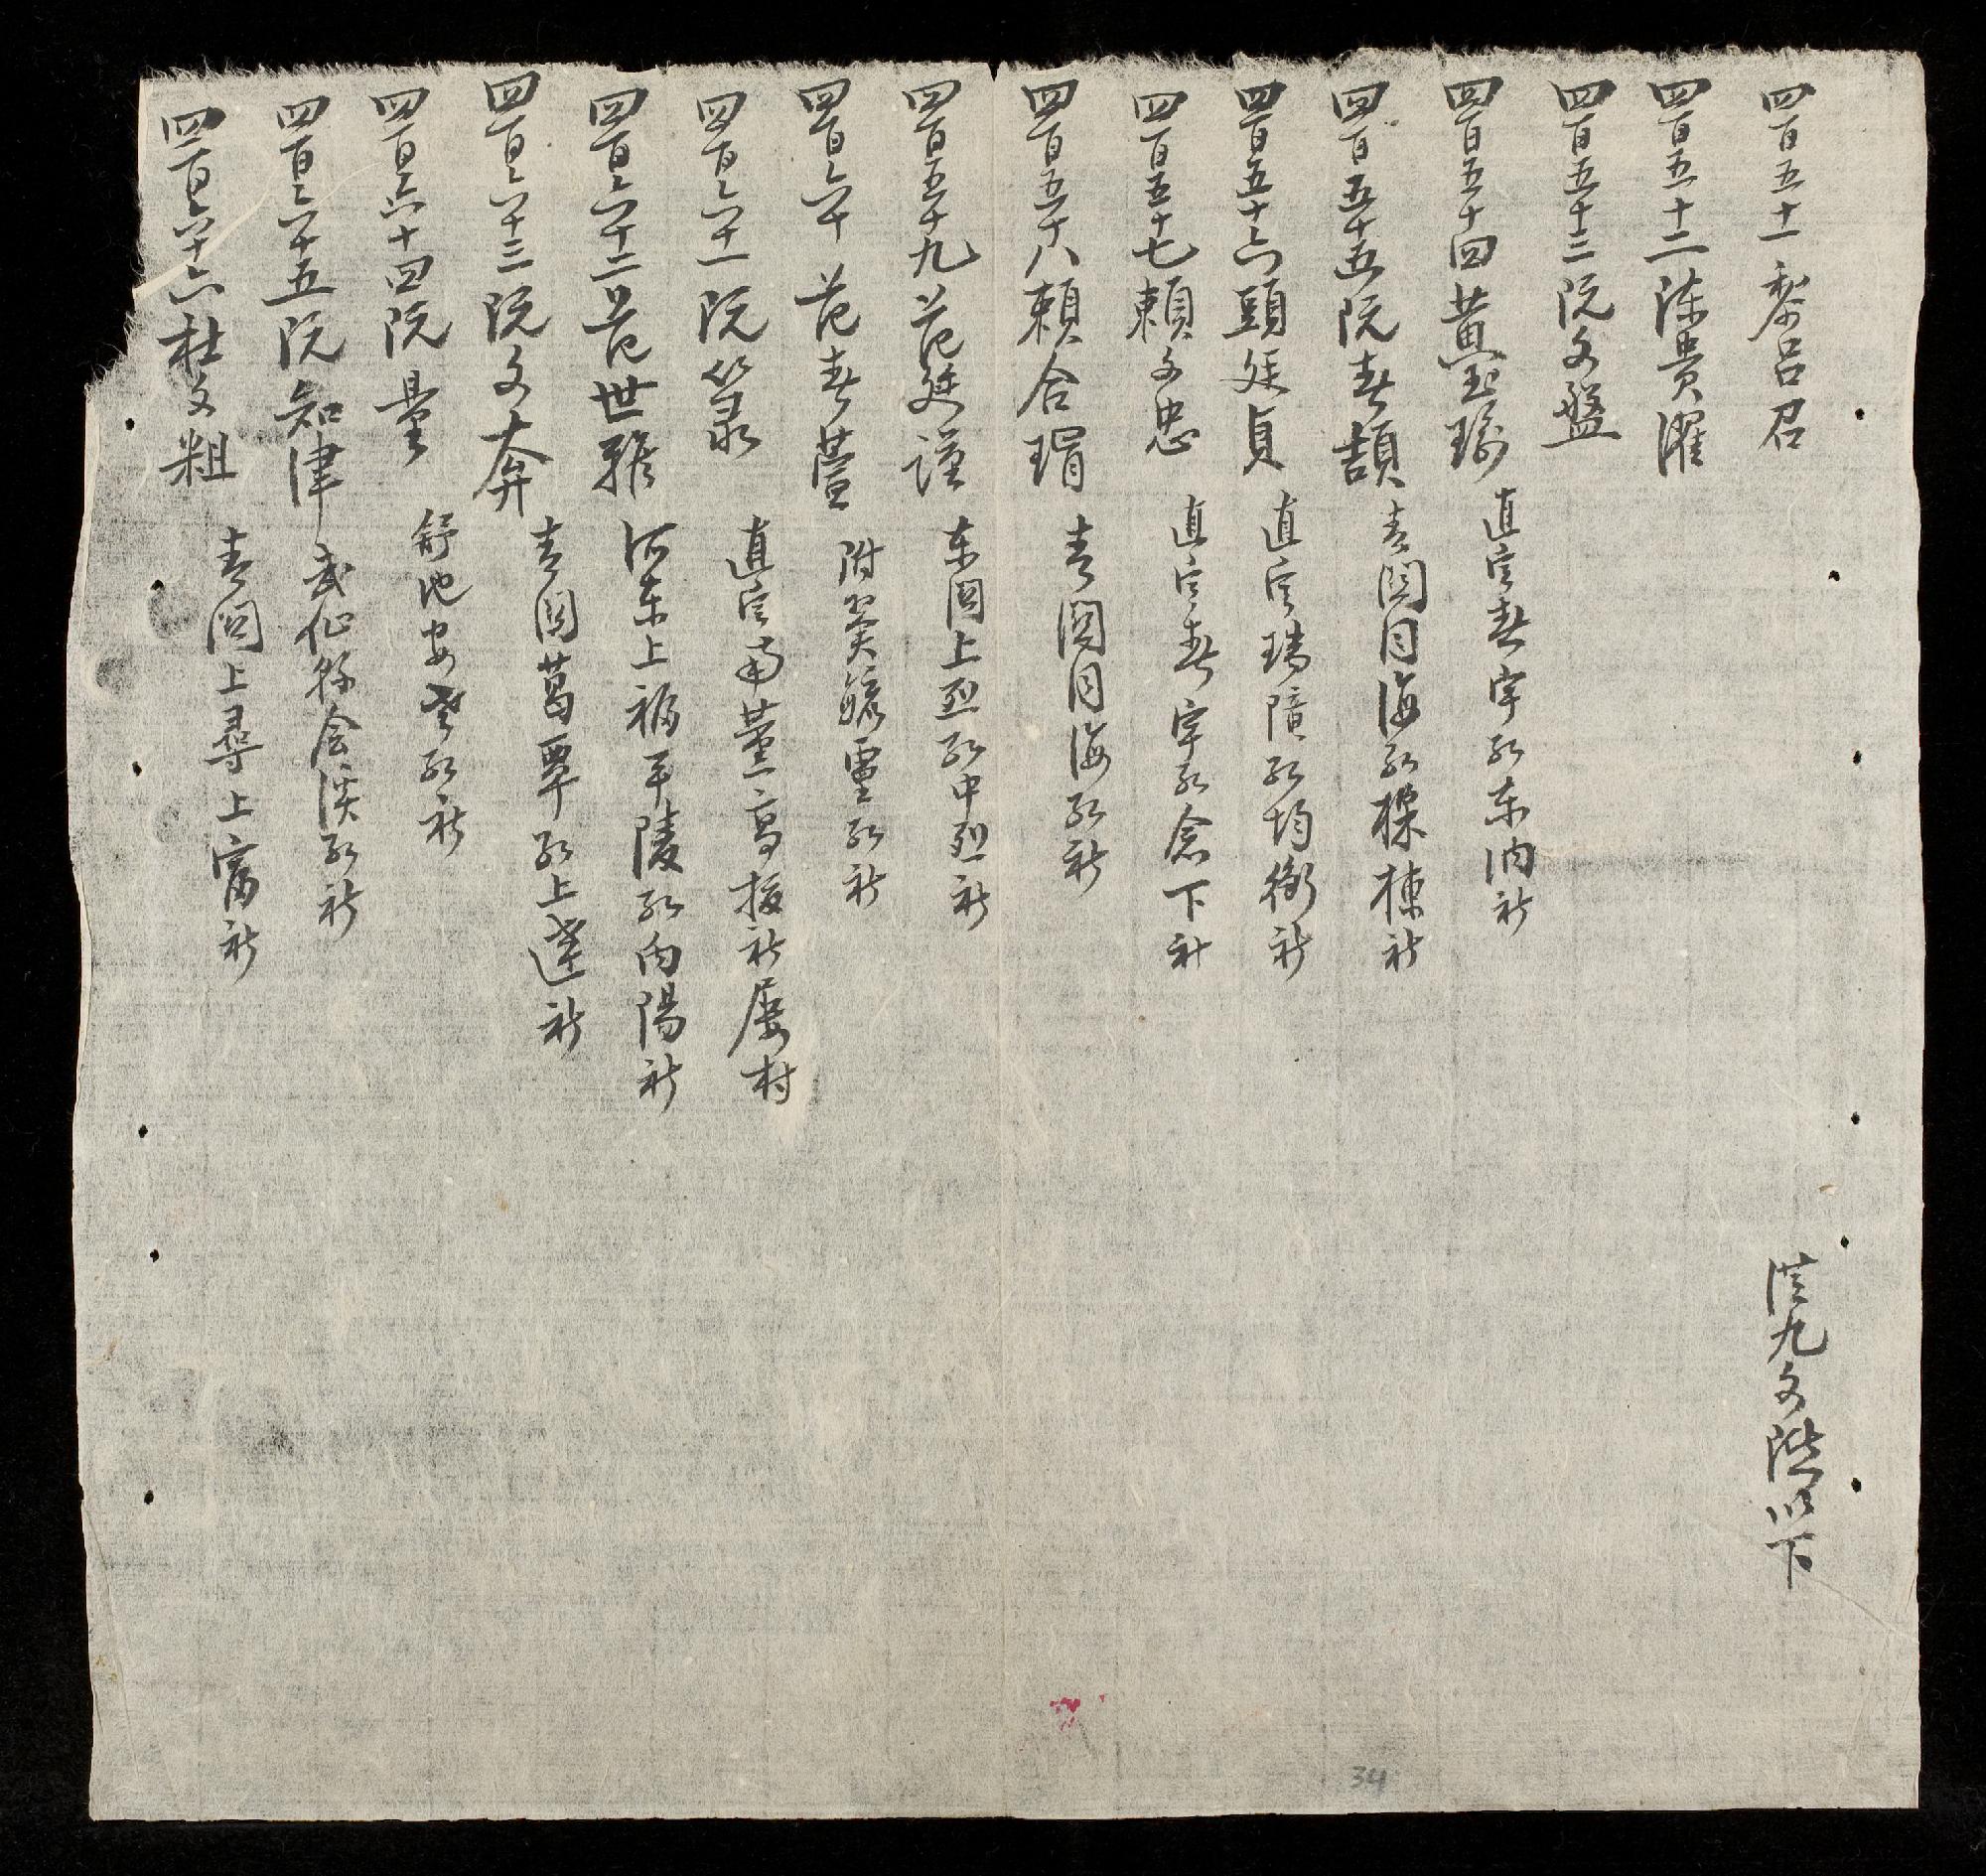 四百五十一 黎吕召
四百五十二 陳貴濯
四百五十三 阮文盤
四百五十四 黄玉瑜 直定春宇総東内社
四百五十五 阮春頡 青関同海総樑棟社
四百五十六 頭廷貞 直定瑞障総均衡社
四百五十七 頼文忠 直定春宇総念下社
四百五十八 頼合琄 青関同海総社
四百五十九 范廷謹 東関上烈総中烈社
四百六十 范春萱 附翼総社
四百六十一 阮箓 直定高社屡村
四百六十二 范世雅 河東上福平陵総内陽社
四百六十三 阮文奔 青関葛覃総上達社
四百六十四 阮量 舒池安老総社
四百六十五 阮知津 武仙総社
四百六十六 杜文粗 青関上尋上富社
九文陛以下
34